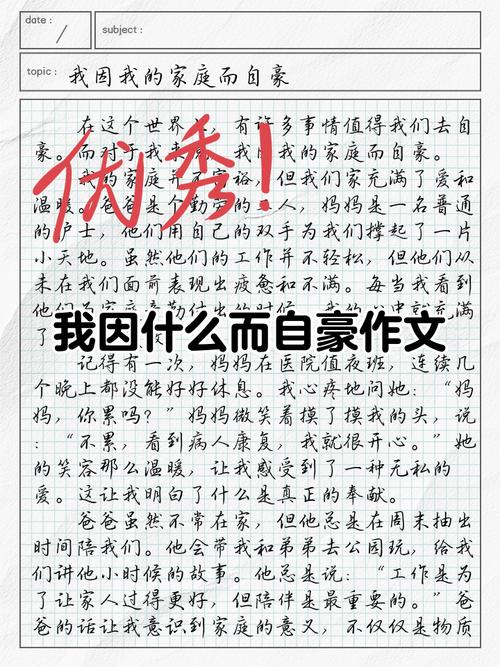 date :
subject :
topic : 我因我的家庭而自豪
在这个世界，有许多事情值得我们去自
豪。而对于我来说，我因我的家庭而自豪。
我的家庭并不富裕，但我们家充满了爱和
温暖。爸爸是个勤劳的工人，妈妈是一名普通
的护士，他们用自己的双手为我们撑起了一片
小天地。虽然他们的工作并不轻松，但他们从
未在我们面前表现出疲惫和不满。每当我看到
充满
了
优秀！
我因什么而自豪作文
记得有一次，妈妈在医院值夜班，连续几
个晚上都没能好好休息。我心疼地问她：“妈
妈，你累吗？”妈妈微笑着摸了摸我的头，说
：“不累，看到病人康复，我就很开心。”她
的笑容那么温暖，让我感受到了一种无私的
爱。这让我明白了什么是真正的奉献。
爸爸虽然不常在家，但他总是在周末抽出
时间陪我们。他会带我和弟弟去公园玩，给我
们讲他小时候的故事。他总是说：“工作是为
了让家人过得更好，但陪伴是最重要的。”爸
爸的话让我意识到家庭的意义，不仅仅是物质